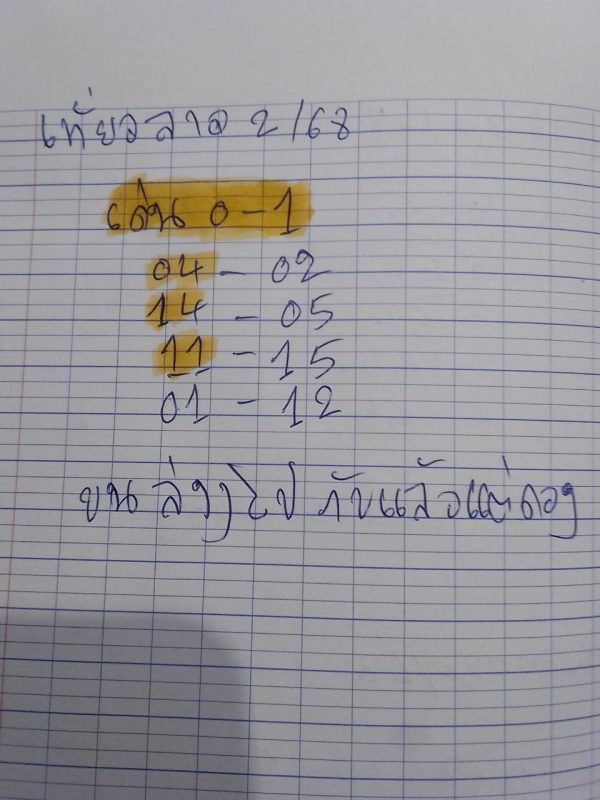 เที่ยวลาว 2/68
เด่น 0-1
04 - 02
14 - 05
11 - 15
01 - 12
บน ล่าง ไป กับแล้วแต่ดวง